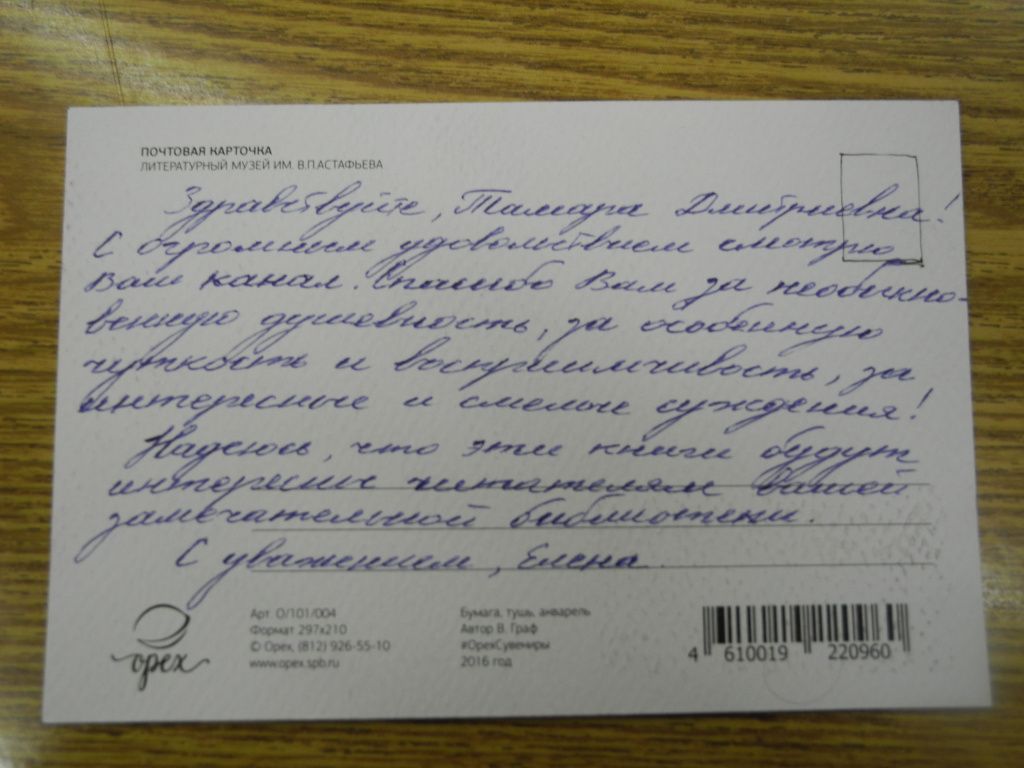 ПОЧТОВАЯ КАРТОЧКА
ЛИТЕРАТУРНЫЙ МУЗЕЙ ИМ. В.П.АСТАФЬЕВА
Здравствуйте, Тамара Дмитриевна!
С огромным удовольствием смотрю
Ваш канал. Спасибо Вам за необыкно-
венную душевность, за особенную
чуткость и восприимчивость, за
интересные и смелые суждения!
Надеюсь, что эти книги будут
интересны читателям Вашей
замечательной библиотеки.
С уважением, Елена.
орех
Арт. О/101/004
Формат 297х210
© Орех, (812) 926-55-10
www.opex.spb.ru
Бумага, тушь, акварель
Автор В. Граф
#ОрехСувениры
2016 год
4 610019 220960